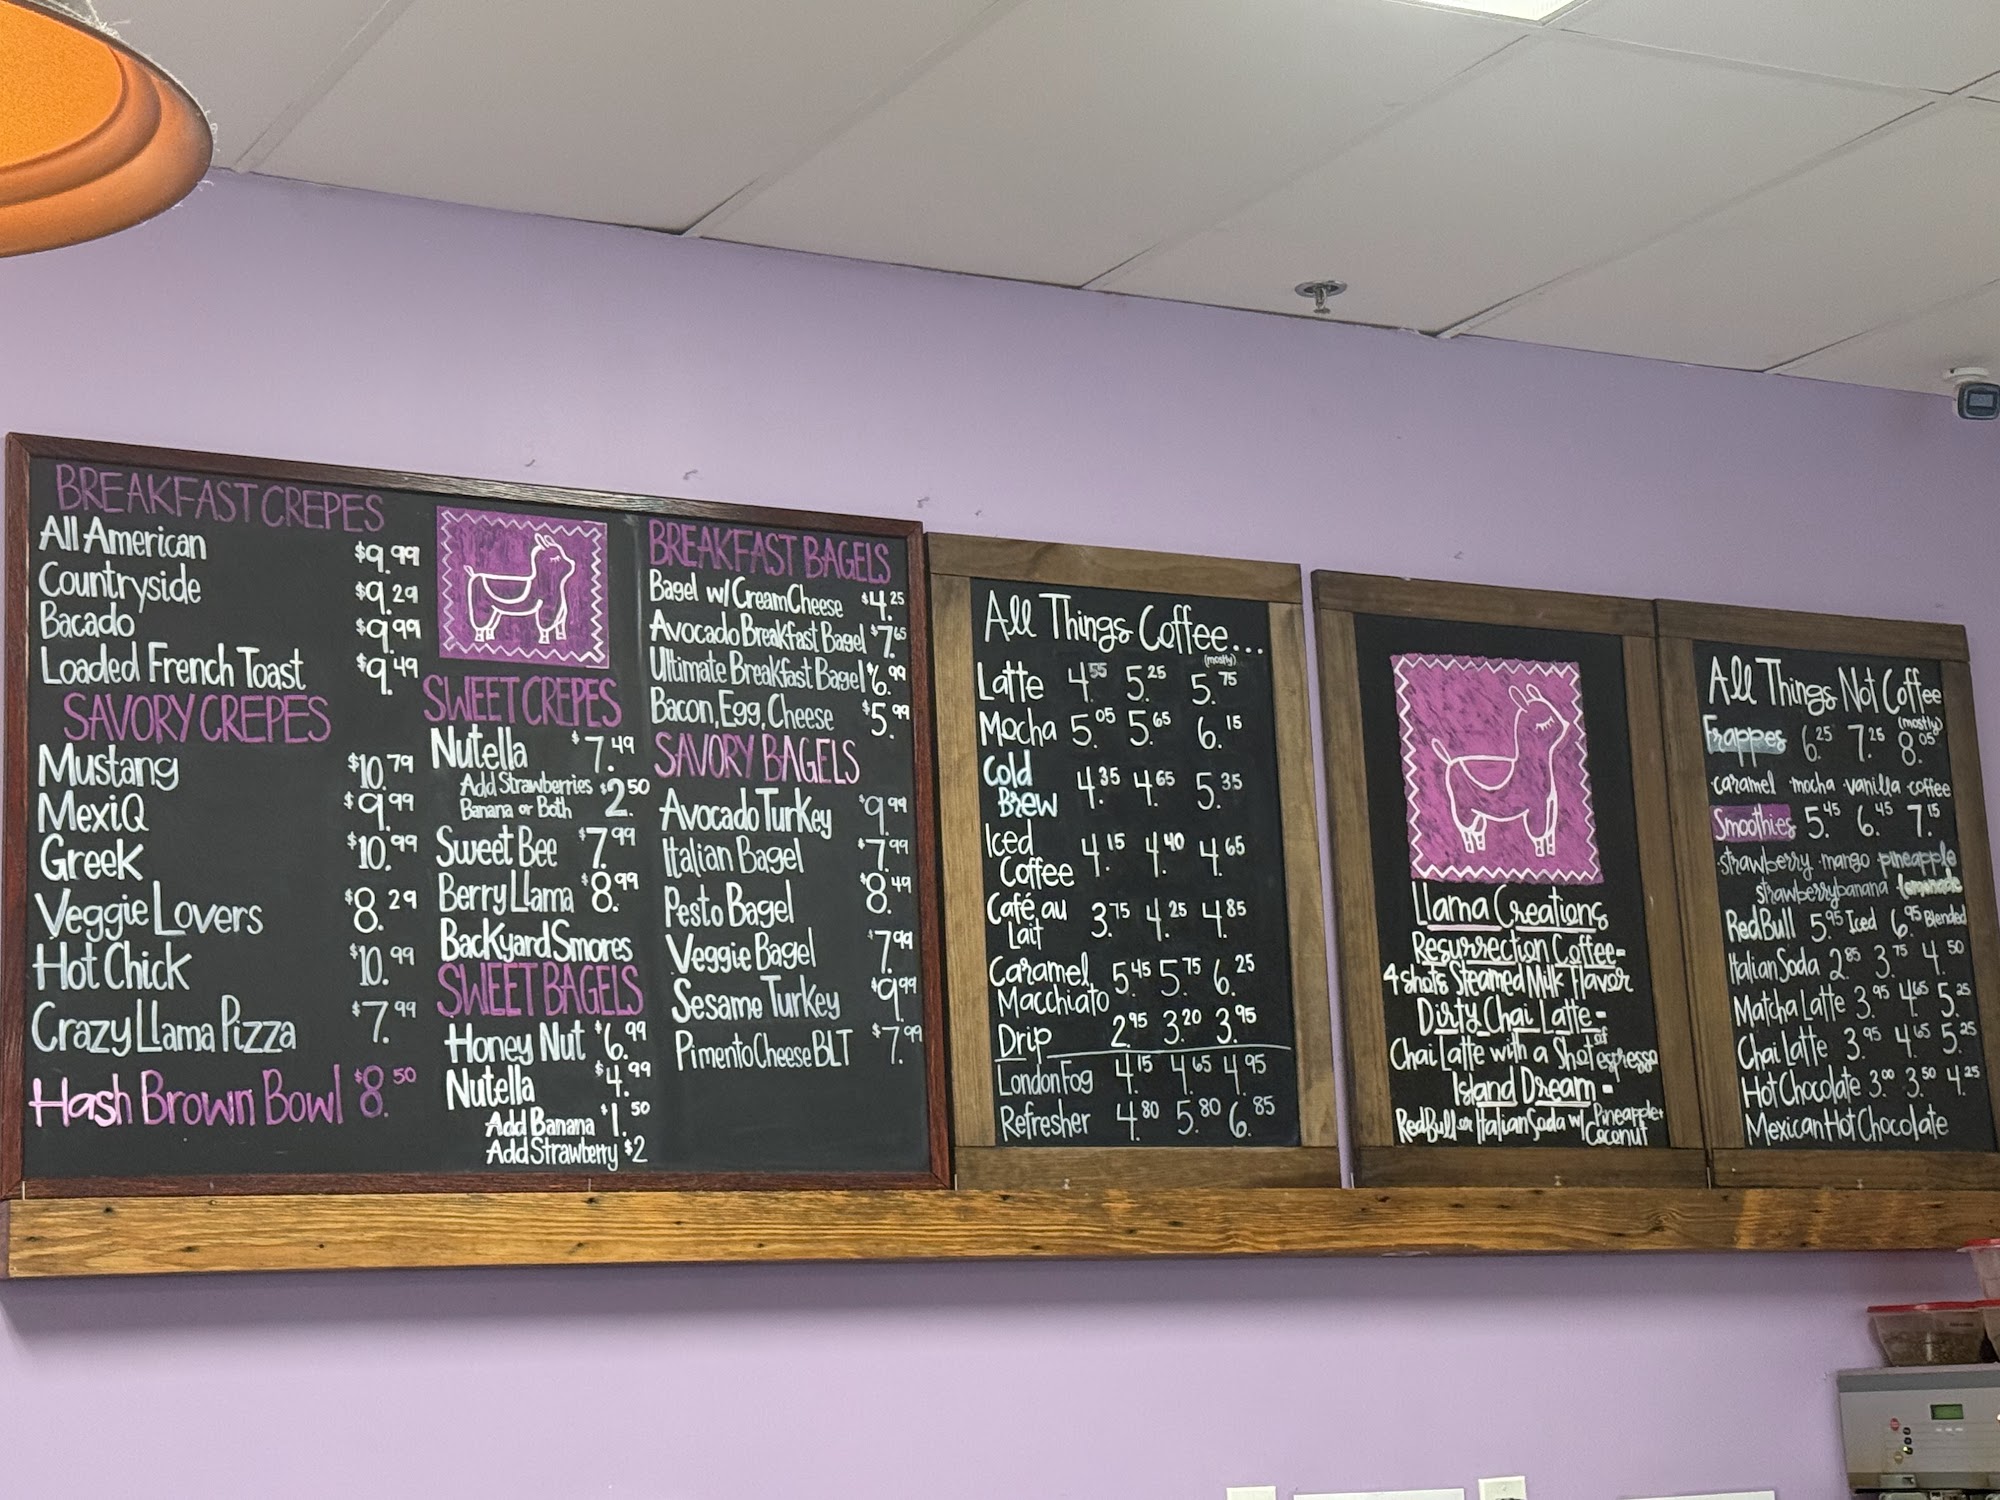 BREAKFAST CREPES
All American $9.99
Countryside $9.29
Bacado $9.99
Loaded French Toast $9.49
SAVORY CREPES
Mustang $10.79
MexiQ $9.99
Greek $10.99
Veggie Lovers $8.29
Hot Chick $10.99
Crazy Llama Pizza $7.99
Hash Brown Bowl $8.50
SWEET CREPES
Nutella $7.49
Add Strawberries $2.50
Banana or Both
Sweet Bee $7.99
Berry Llama $8.99
Backyard Smores
SWEET BAGELS
Honey Nut $6.99
Nutella $4.99
Add Banana $1.50
Add Strawberry $2
BREAKFAST BAGELS
Bagel w/ Cream Cheese $4.25
Avocado Breakfast Bagel $7.65
Ultimate Breakfast Bagel $6.99
Bacon, Egg, Cheese $5.99
SAVORY BAGELS
Avocado Turkey $9.99
Italian Bagel $7.99
Pesto Bagel $8.49
Veggie Bagel $7.99
Sesame Turkey $9.99
Pimento Cheese BLT $7.99
All Things Coffee...
(mostly)
Latte 4.55 5.25 5.75
Mocha 5.05 5.65 6.15
Cold
Brew 4.35 4.65 5.35
Iced
Coffee 4.15 4.40 4.65
Café au
Lait 3.75 4.25 4.85
Caramel
Macchiato 5.45 5.75 6.25
Drip 2.95 3.20 3.95
London Fog 4.15 4.65 4.95
Refresher 4.80 5.80 6.85
Llama Creations
Resurrection Coffee-
4 shots Steamed Milk Flavor
Dirty Chai Latte-
Chai Latte with a Shot of espresso
Island Dream-
Red Bull or Italian Soda w/ Pineapple+
Coconut
All Things Not Coffee
(mostly)
Frappes 6.25 7.25 8.05
caramel · mocha · vanilla · coffee
Smoothies 5.45 6.45 7.15
strawberry · mango · pineapple
strawberrybanana · lemonade
Red Bull 5.95 Iced 6.95 Blended
Italian Soda 2.85 3.75 4.50
Matcha Latte 3.95 4.65 5.25
Chai Latte 3.95 4.65 5.25
Hot Chocolate 3.00 3.50 4.25
Mexican Hot Chocolate